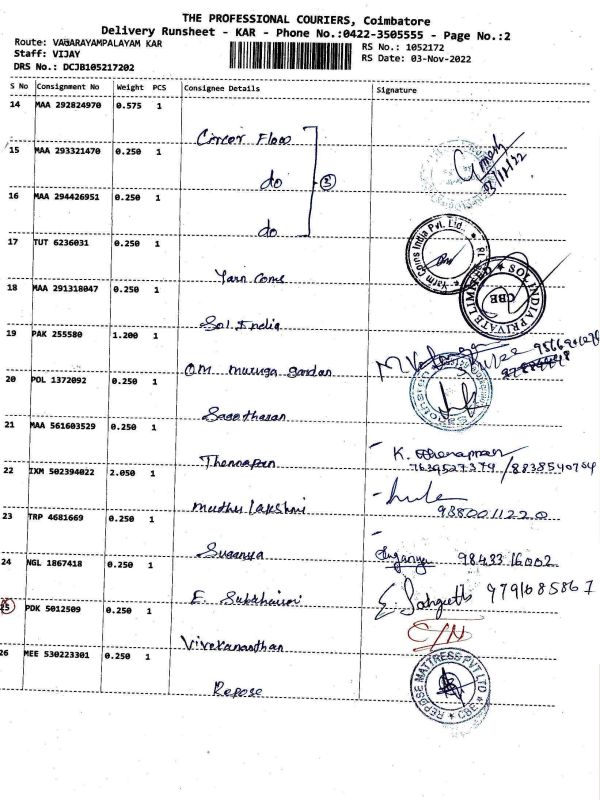 THE PROFESSIONAL COURIERS, Coimbatore
Delivery Runsheet - KAR - Phone No.:0422-3505555 - Page No.:2
Route: VADARAYAMPALAYAM KAR
Staff: VIJAY
DRS No.: DCJB105217202
RS No.: 1052172
RS Date: 03-Nov-2022
S No Consignment No Weight PCS Consignee Details Signature
14 MAA 292824970 0.575 1 Circor Flow
15 MAA 293321470 0.250 1 do
3
16 MAA 294426951 0.250 1 do
17 TUT 6236031 0.250 1 Yarn Coms
Yarm Coins India Pvt. Ltd.
18 MAA 291318047 0.250 1 Sol India
SOL INDIA PRIVATE LIMITED
CBE
19 PAK 255580 1.200 1 OM muruga garden
20 POL 1372092 0.250 1 Sasetharan
21 MAA 561603529 0.250 1 Thennapan
K.
7639527379 / 8838540704
22 IXM 502394022 2.050 1 muthu Lakshmi
9880011220
23 TRP 4681669 0.250 1 Suganya
Suganya 98433 16002
24 NGL 1867418 0.250 1 E.
E. 9791085867
25 PDK 5012509 0.250 1 Vivekananthan
C/N
26 MEE 530223301 0.250 1 Repose
REPOSE MATTRESS PVT LTD
CBE